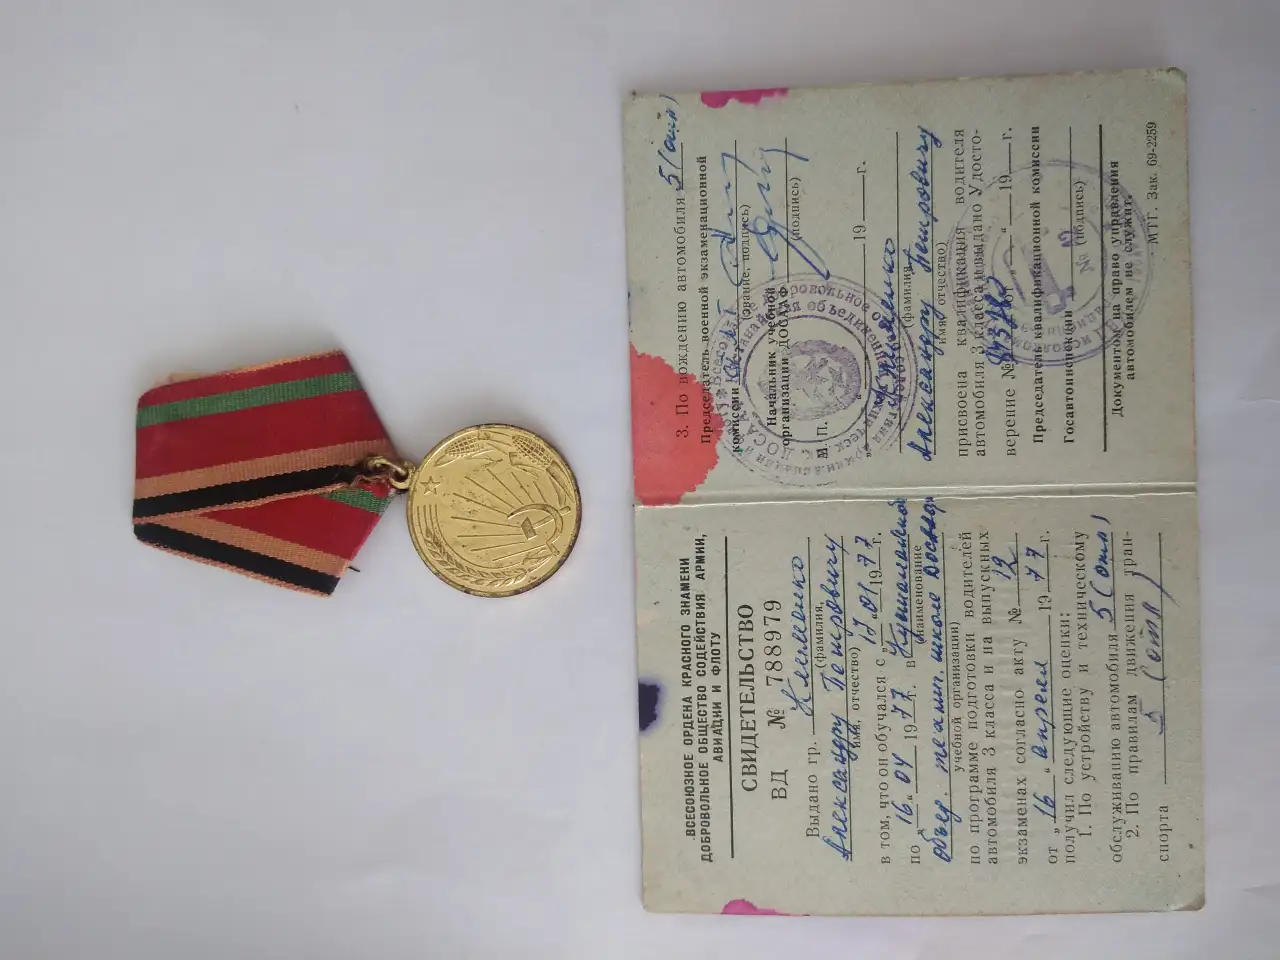 ВСЕСОЮЗНОЕ ОРДЕНА КРАСНОГО ЗНАМЕНИ
ДОБРОВОЛЬНОЕ ОБЩЕСТВО СОДЕЙСТВИЯ АРМИИ,
АВИАЦИИ И ФЛОТУ
СВИДЕТЕЛЬСТВО
ВД № 788979
Выдано гр. Клименко
(фамилия,
Александру Петровичу
имя, отчество)
в том, что он обучался с „17„ 01 1977 г.
по „16„ 04 1977 г. в Кустанайской
(наименование
объед. технич. школе Досааф
учебной организации)
по программе подготовки водителей
автомобиля 3 класса и на выпускных
экзаменах согласно акту № 12
от „16„ апреля 1977 г.
получил следующие оценки:
1. По устройству и техническому
обслуживанию автомобиля 5 (отл)
2. По правилам движения тран-
спорта 5 (отл)
3. По вождению автомобиля 5
Председатель военной экзаменационной
комиссии
(звание, подпись)
Начальник учебной
организации ДОСААФ
(подпись)
М. П.
„ „ 19 г.
Клименко
(фамилия,
Александру Петровичу
имя, отчество)
присвоена квалификация водителя
автомобиля 3 класса и выдано Удосто-
верение № от „ „ 19 г.
Председатель квалификационной комиссии
Госавтоинспекции
(подпись)
Документом на право управления
автомобилем не служит.
МТГ. Зак. 69-2259